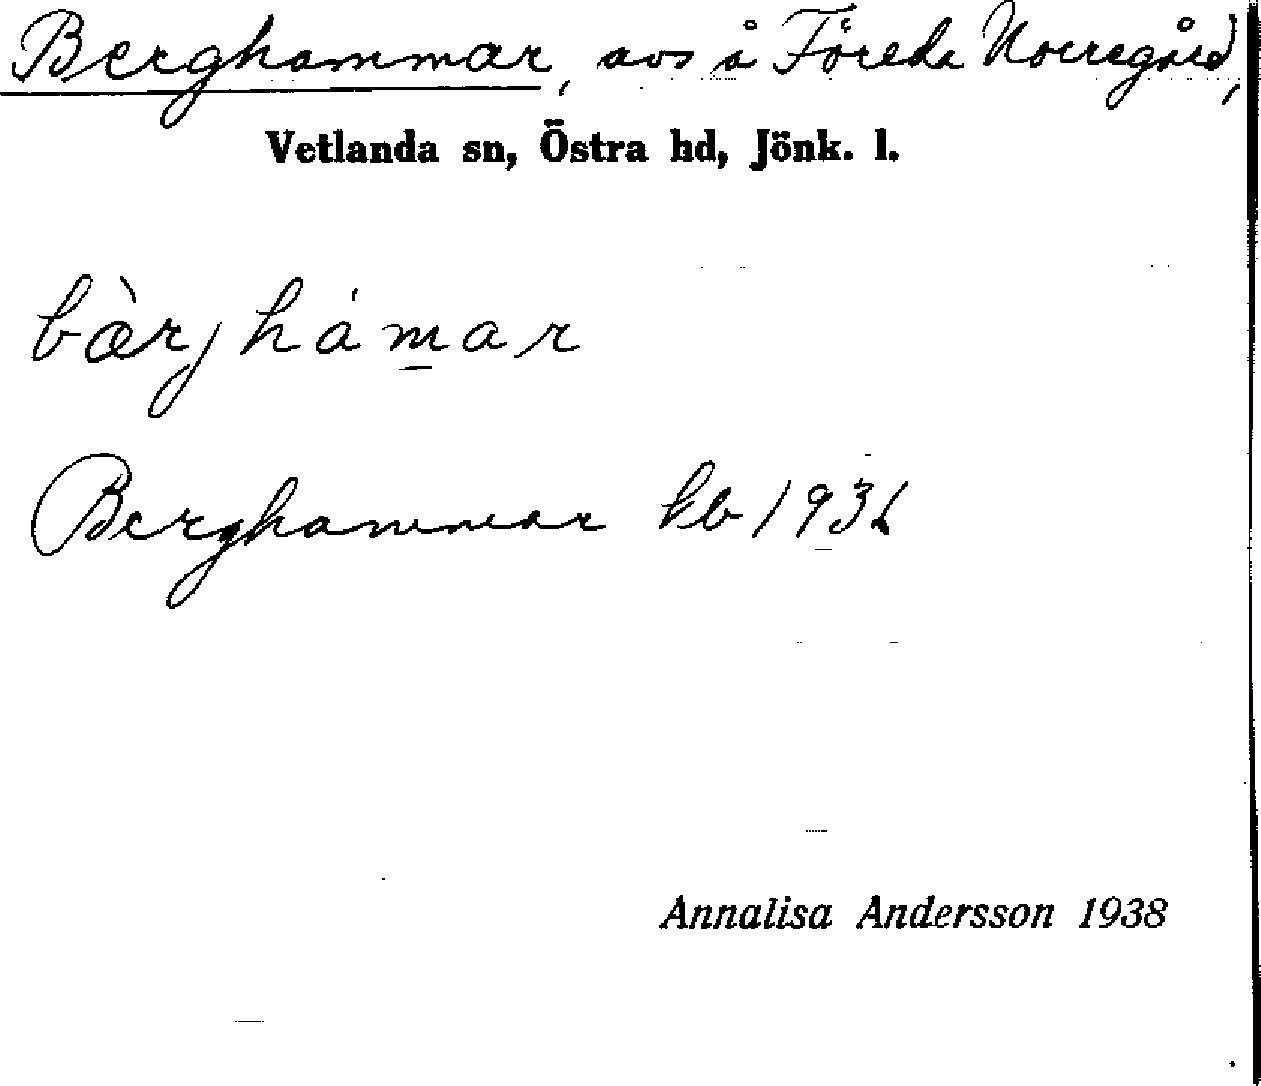 Berghammar, avs å Föreda Norregård,
Vetlanda sn, Östra hd, Jönk. l.
bæ̀rjhámar
Berghammar kb 1931
Annalisa Andersson 1938